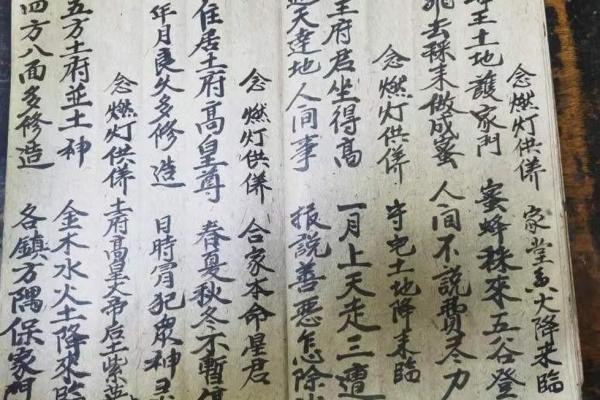 念燃灯供併 家堂香火降来臨
王土地護家門 蜜蜂秼來五谷登
去秼来做成蜜 人间不說費尽力
念燃灯供併 守宅土地降来臨
王府君坐得高 一月上天走三遭
天達地人间事 报說善恶怎除
念燃灯供併 合家本命星君
住居土府高皇尊 春夏秋冬不暫停
年月良久多修造 日時冐犯眾神
念燃灯供併 土府高皇大帝后王紫
五方土府並土神 金木水火土降來臨
四方八面多修造 各鎮方隅保家門